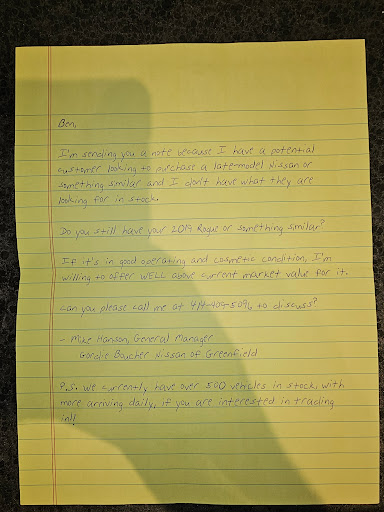 Ben,
I'm sending you a note because I have a potential
customer looking to purchase a late-model Nissan or
something similar and I don't have what they are
looking for in stock.
Do you still have your 2019 Rogue or something similar?
If it's in good operating and cosmetic condition, I'm
willing to offer WELL above current market value for it.
Can you please call me at 414-409-5096 to discuss?
- Mike Hanson, General Manager
Gordie Boucher Nissan of Greenfield
P.S. We currently have over 500 vehicles in stock, with
more arriving daily, if you are interested in trading
in!!